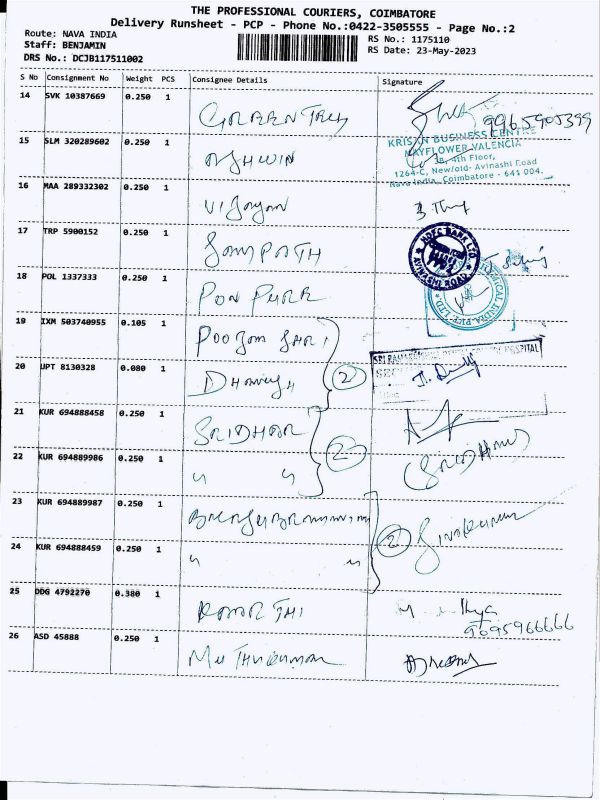 THE PROFESSIONAL COURIERS, COIMBATORE
Delivery Runsheet - PCP - Phone No.:0422-3505555 - Page No.:2
Route: NAVA INDIA
RS No.: 1175110
Staff: BENJAMIN
RS Date: 23-May-2023
DRS No.: DCJB117511002
S No Consignment No Weight PCS Consignee Details Signature
14 SVK 10387669 0.250 1 GREEN TREE 9965905399
15 SLM 320289602 0.250 1 ASHWIN
KRISAN BUSINESS CENTRE
MAYFLOWER VALENCIA
3B, 4th Floor,
1264-C, New/old- Avinashi Road
Nava India, Coimbatore - 641 004.
16 MAA 289332302 0.250 1 VIJAYAN
17 TRP 5900152 0.250 1 SAMPATH
HDFC BANK LTD
AVINASHI ROAD
18 POL 1337333 0.250 1 PON PURE
CHEMICAL INDIA PVT. LTD
19 IXM 503740955 0.105 1 POOJA SHRI
20 UPT 8130328 0.080 1 DHANUSH 2
HOSPITAL
21 KUR 694888458 0.250 1 SRIDHAR
22 KUR 694889986 0.250 1 " " 2 (SRIDHAR)
23 KUR 694889987 0.250 1 BALASUBRAMANIAM
24 KUR 694888459 0.250 1 " " 2 Sivakumar
25 DDG 4792270 0.380 1
9095966666
26 ASD 45888 0.250 1 MUTHUKUMAR